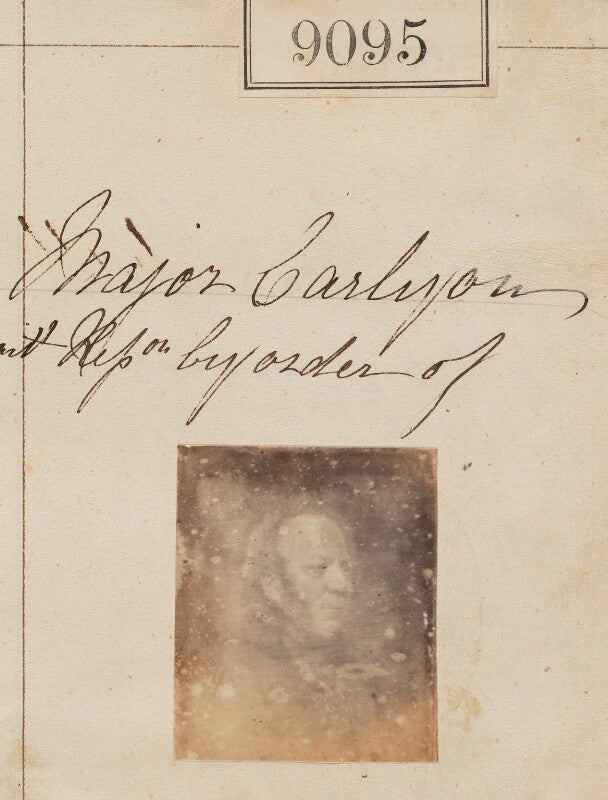 9095
Major Carlyon
Repon by order of